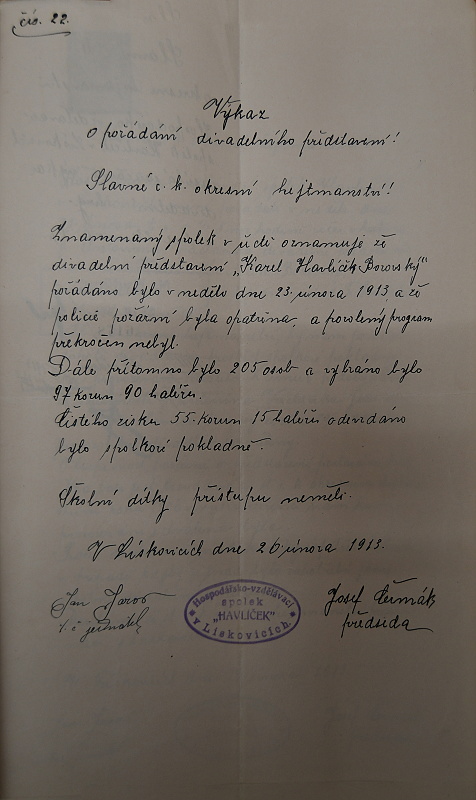 čís. 22.
Výkaz
o pořádání divadelního představení!
Slavné c. k. okresní hejtmanství!
Znamenaný spolek v úctě oznamuje že
divadelní představení „Karel Havlíček Borovský"
pořádáno bylo v neděli dne 23. února 1913, a že
policie požární byla opatřena, a povolený program
překročen nebyl.
Dále přítomno bylo 205 osob a vybráno bylo
97 korun 90 haléřů.
Čistého zisku 55. korun 15 haléřů odevzdáno
bylo spolkové pokladně.
Školní dítky přístupu neměli.
V Liskovicích dne 26. února 1913.
Jan
t. č. jednatel
Hospodářsko-vzdělávací
spolek
„HAVLÍČEK"
v Liskovicích.
Josef Čermák
předseda